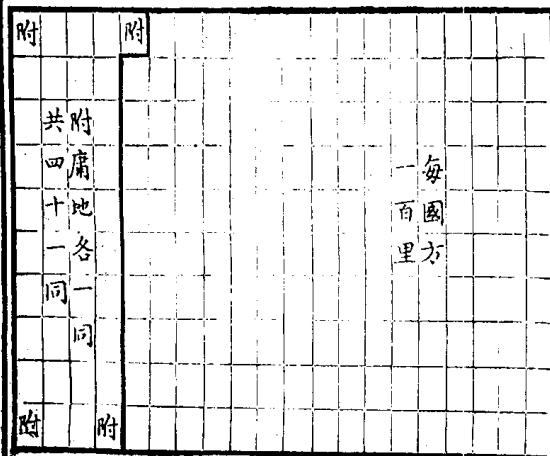 附
每國方
一百里
附
附庸地各一同
共四十一同
附
附